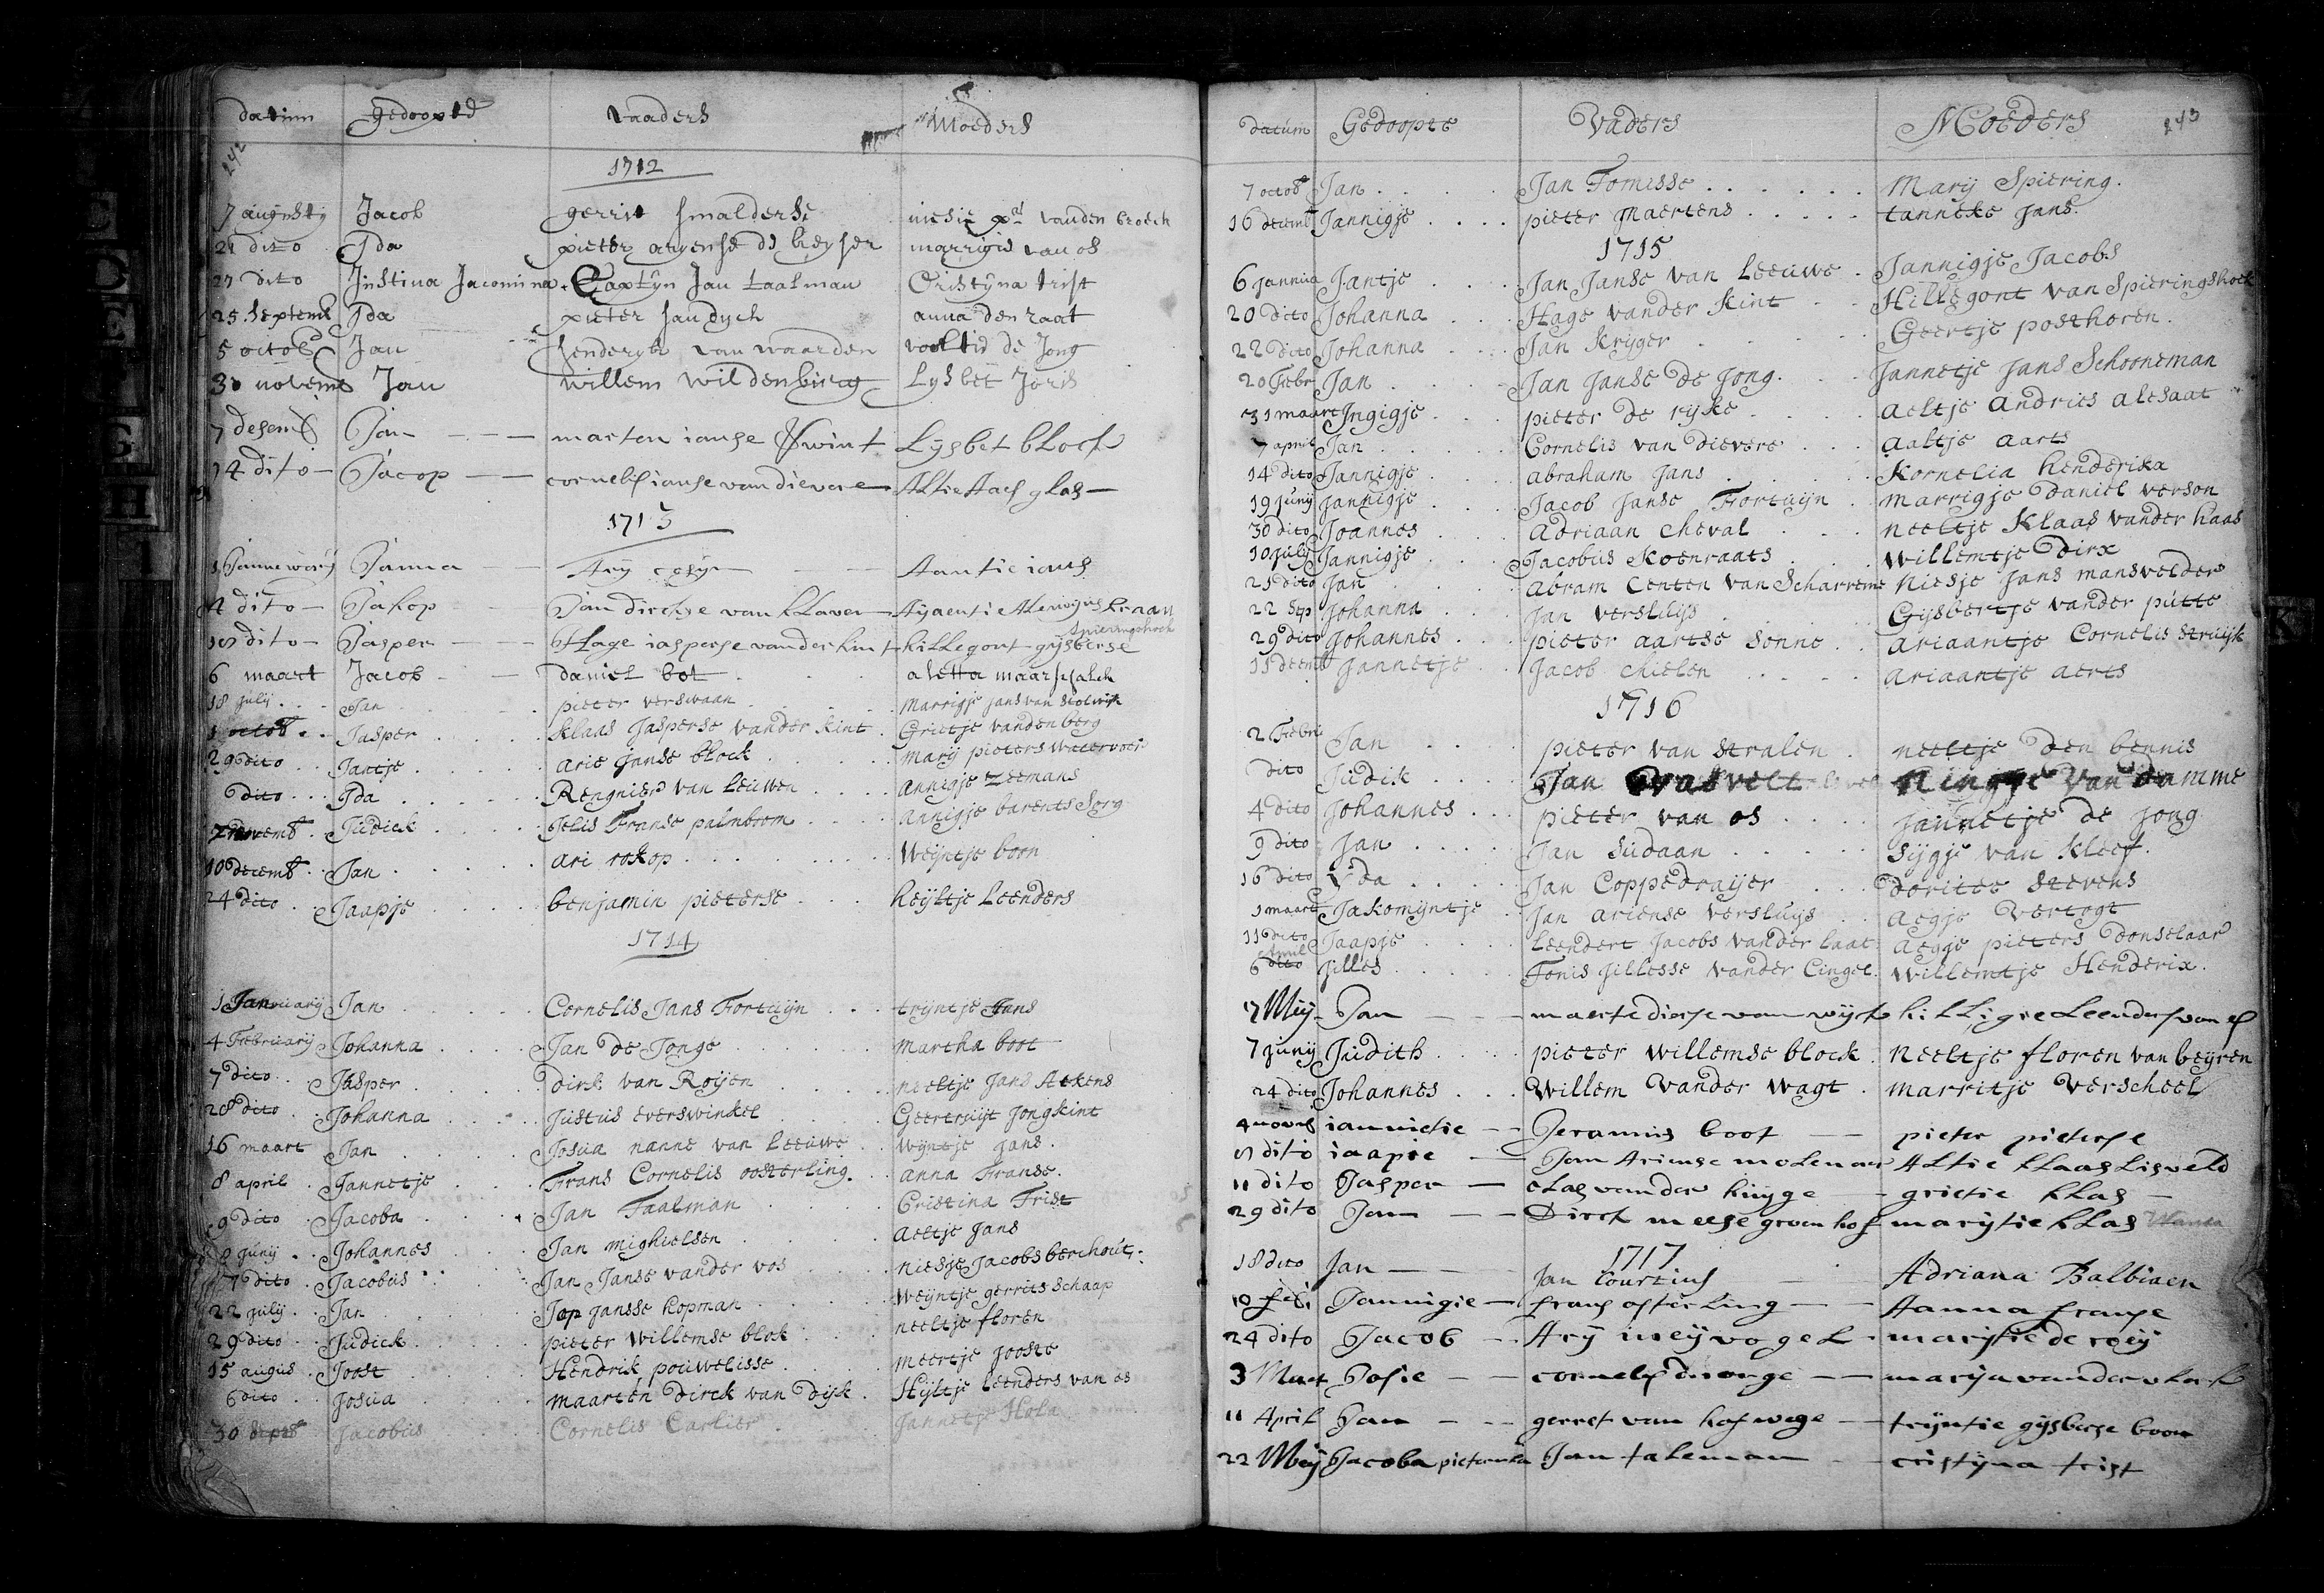 datum gedoopte vaaders Moeders
242
1712
7 augusty Jacob gerrit smalderse vanden broeck
21 dito Ida pieter aryense de keyser marrigie van os
27 dito Justina Jacomina Captyn Jan taalman Cristyna trist
25 septemb Ida pieter sandyck anna den raat
5 octob Jan henderyk van waarden de Jong
30 novemb Jan willem wildenburg Lysbet Joris
7 desemb Jan marten ianse Swint Lysbet block
14 dito Jacop cornelis ianse van dievere Altie Aach glas
1713
1 Jannewary Janna Ary Aantie ians
4 dito Jakop Jan dirckse van klaveren kraan
dito Jasper Hage iasperse vander kint hillegont gysberse spieringshoek
6 maart Jacob daniel bot aletta maarschalck
18 july Jan pieter verswaan Marrigje Jans van stolwik
1 octob Jasper klaas Jasperse vander kint Grietje vanden berg
29 dito Jantje arie Janse block mary pieters watervoir
dito Ida Rengnier van Leeuwen annigje Zeemans
novemb Judick Jelis Franse palmboom annigje barents Sorg
10 decemb Jan ari rokop Weijntje boon
24 dito Jaapje benjamin pieterse heyltje Leenders
1714
1 January Jan Cornelis Jans Fortuijn trijntje Jans
4 February Johanna Jan de Jonge martha boot
7 dito Jasper dirk van Roijen neeltje Jans Aekens
28 dito Johanna Justus everswinkel Geertruijt Jongkint
16 maart Jan Josua nanne van Leeuwe Wijntje Jans
8 april Jannetje Frans Cornelis oosterling anna Franse
9 dito Jacoba Jan Taalman Cristina Trist
8 Junij Johannes Jan mighielsen aeltje Jans
7 dito Jacobus Jan Janse vander vos niesje Jacobs berchout
22 july Jan Jop Jansse kopman Weijntje gerrits Schaap
29 dito Judick pieter Willemse blok neeltje floren
15 augus Joost Hendrik pouwelisse meertje Jooste
6 dito Josua maarten dirck van dijk Hijltje Leenders van es
30 septb Jacobus Cornelis Carlier Jannetje Hola
datum Gedoopte Vaders Moeders 243
7 octob Jan Jan Tomisse Marij Spiering
16 decemb Jannigje pieter Maertens tanneke Jans
1715
6 Jannua Jantje Jan Janse van Leeuwe Jannigje Jacobs
20 dito Johanna Hage vander Kint Hillegont van Spieringshoek
22 dito Johanna Jan Krijger Geertje posthoren
20 Febr Jan Jan Janse de Jong Jannetje Jans Schooneman
31 maart Ingigje pieter de rijke aeltje andries alesaat
7 april Jan Cornelis van dievere aaltje aarts
14 dito Jannigje abraham Jans Kornelia henderika
19 Junij Jannigje Jacob Janse Fortuijn marrigje daniel verson
30 dito Joannes adriaan cheval neeltje Klaas vander haas
10 july Jannigje Jacobus Koenraats Willemtje dirx
21 dito Jan abram Centen van Scharreme niesje Jans mansvelder
22 Sep Johanna Jan versluijs Gijsbertje vander putte
29 dito Johannes pieter aartse Sonne ariaantje Cornelis Struijk
11 decemb Jannetje Jacob chielen ariaantje aerts
1716
2 Febr Jan pieter van Stralen neeltje den bennis
dito Judik Jan Van damme
4 dito Johannes pieter van os Jannetje de Jong
9 dito Jan Jan Sudaan Sijgje van Kleef
16 dito Yda Jan Coppedraijer doritee Stevens
1 maart Jakomijntje Jan ariense versluijs aegje Vertogt
11 dito Jaapje Leendert Jacobs vander laat aegje pieters donselaar
6 april Jilles Tonis Jillesse vander Cingel Willemtje Henderix
17 Meij Jan maerte dirse van wijk hilligie Leenders van es
7 Junij Judith pieter Willemse block Neeltje floren van beijren
24 dito Johannes Willem vander Wagt marritje Verscheel
4 novemb iannietie Jeramus boot pieter pieterse
dito iaapie Jan Arienese molenaer Altie klaas Lisveld
11 dito Jasper clas vander kingge grietie klas
29 dito Jan Dirck meese groen hof marijtie klas
1717
18 dito Jan Jan Courtius Adriana Balbiaen
10 feb Jannigie frans osterling Aanna franse
24 dito Jacob Arij meijvogel marijtie de roeij
3 Maert Josie cornelis de ionge marija vander
11 April Jan gerret van hofwege trijntie gijsberse boon
22 Meij Jacoba pieternela Jan taleman cristijna trist